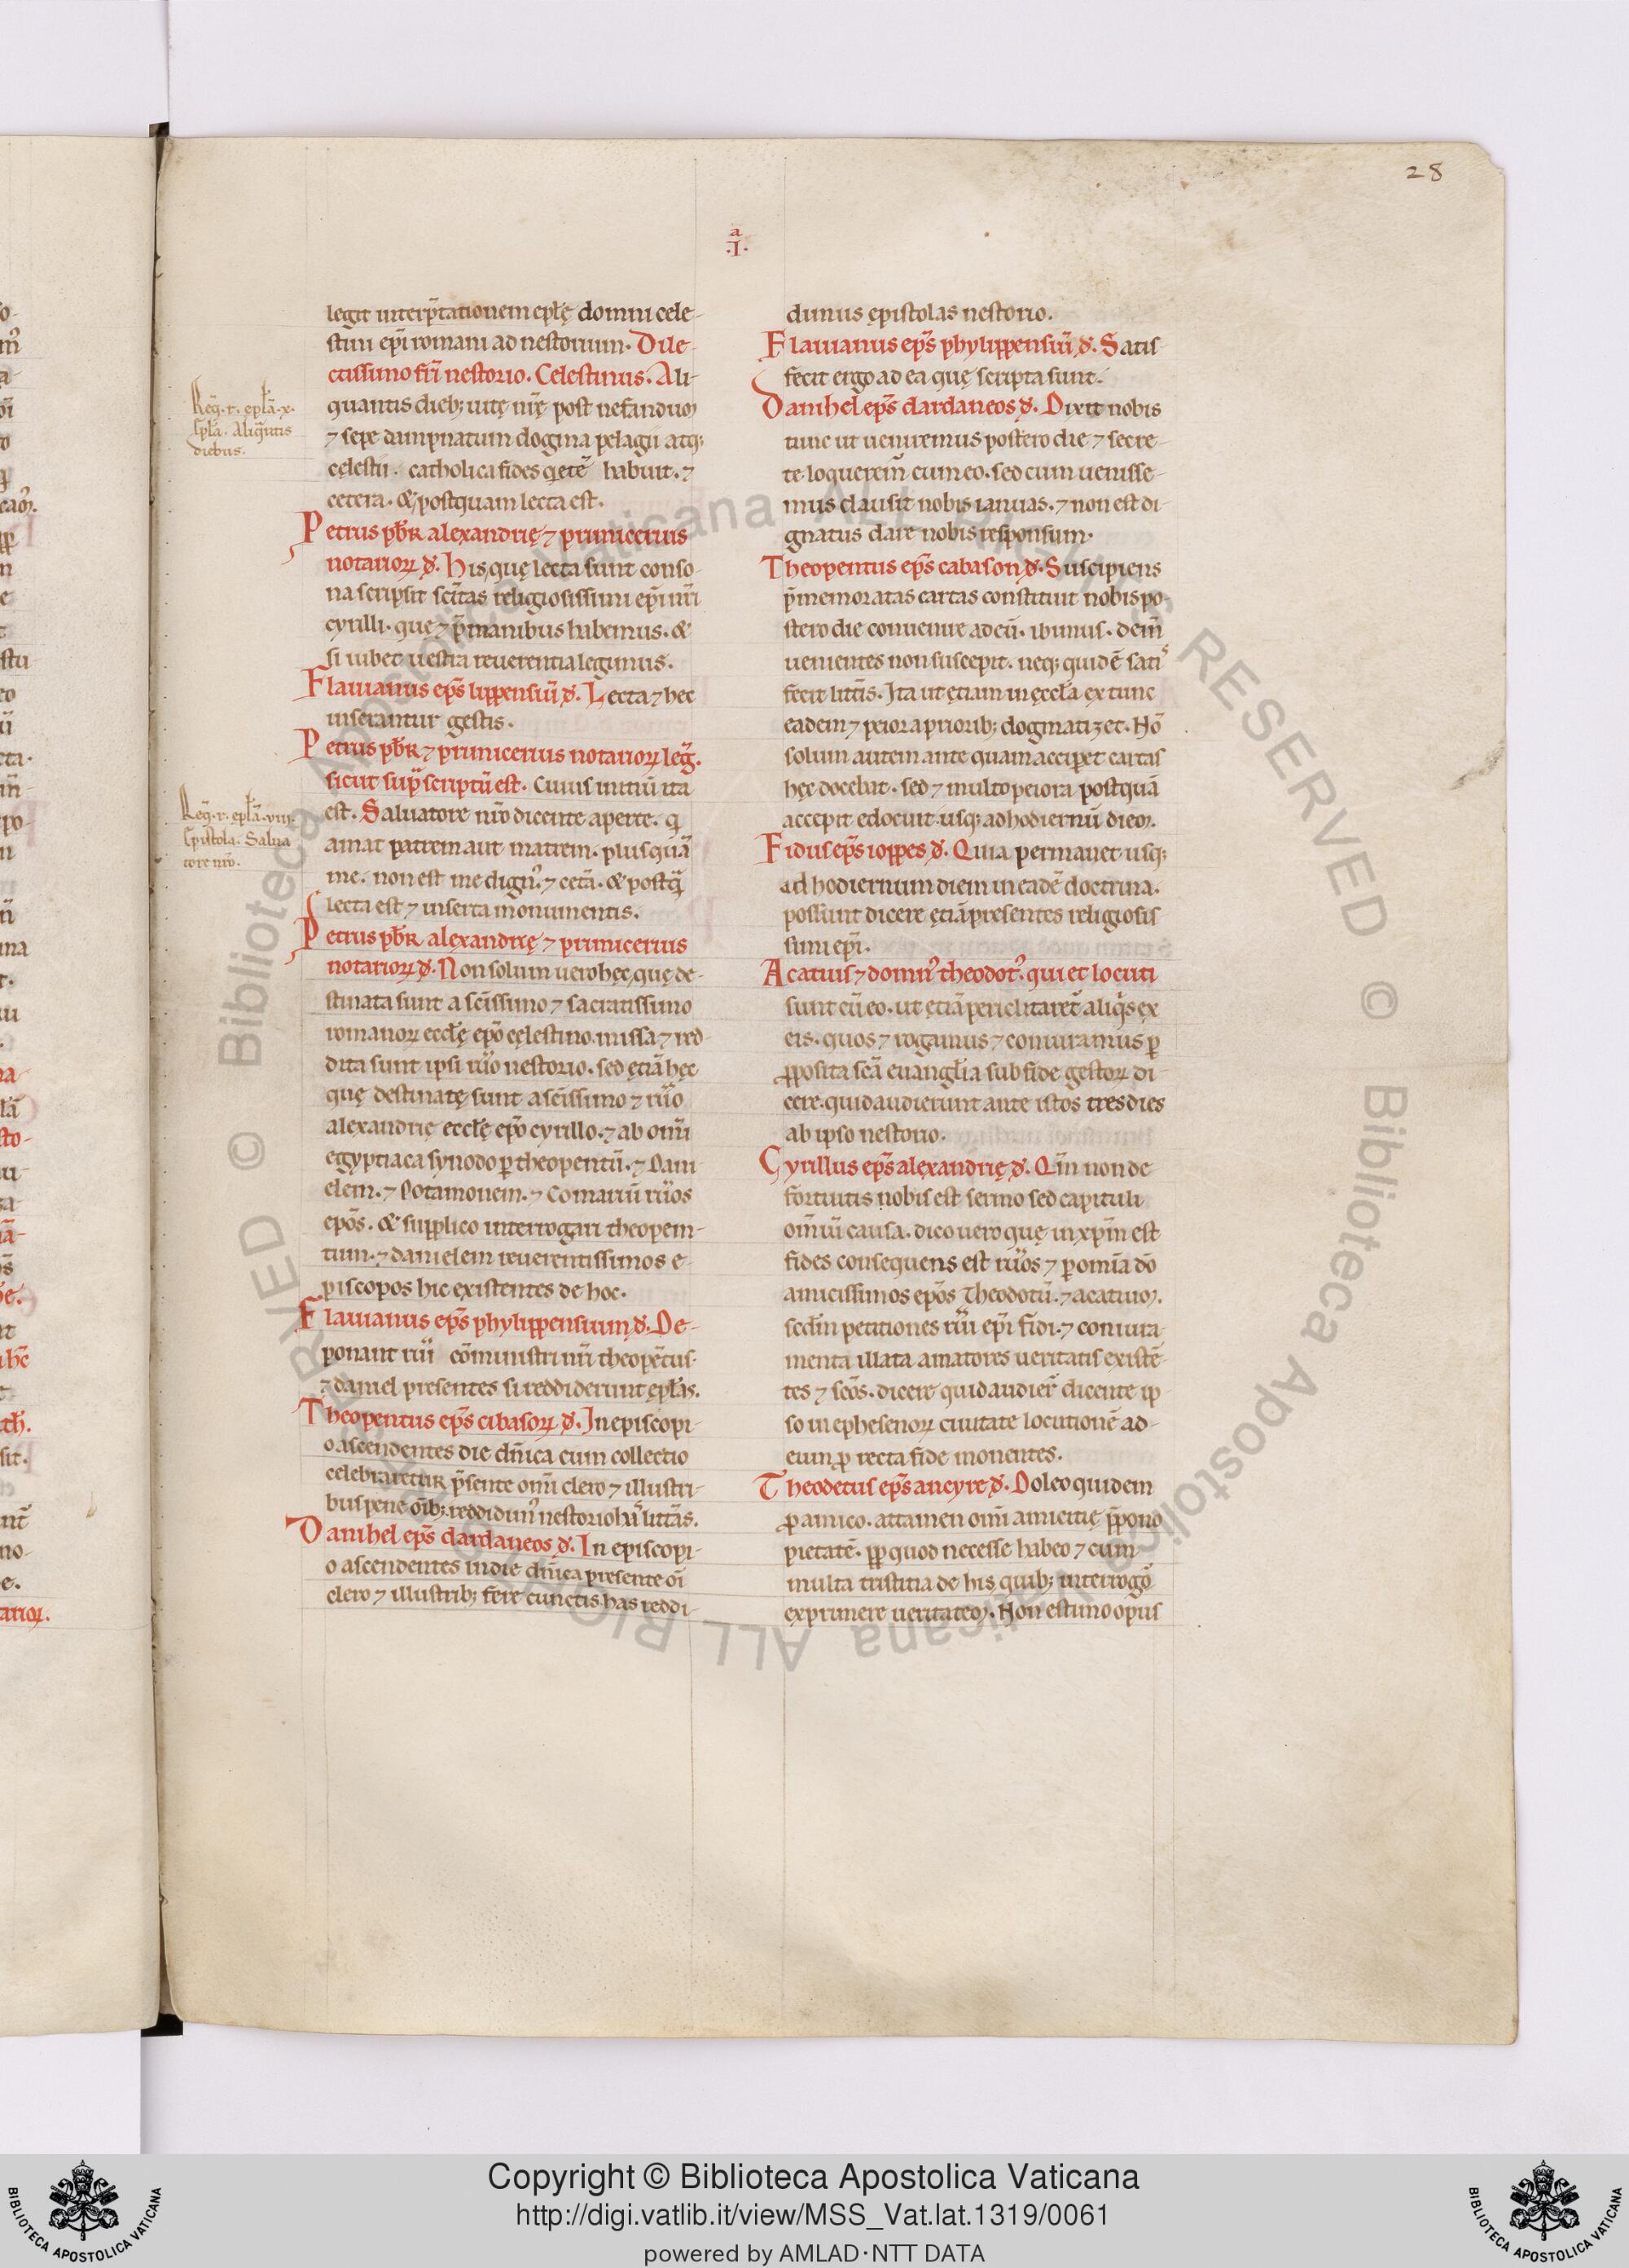 28
a
.I.
legit interp̃tationem epłę domni cele-
stini epĩ romani ad nestorium. Dile-
ctissimo frĩ nestorio. Celestinus. Ali-
quantis dieb; uitę nr̃ę post nefanduꝫ
⁊ sepe dampnatum dogma pelagii atq;
cęlestii. catholica fides q̃etẽ habuit. ⁊
cetera. & postquam lecta est.
Petrus pb̃r alexandrię ⁊ primicerius
notarioꝝ đ. His, quę lecta sunt conso-
na scripsit scĩtas religiosissimi epĩ nr̃i
cyrilli. que ⁊ p̃ manibus habemus. &
si iubet uestra reuerentia legimus.
Flauianus ep̃s lippensiũ đ. Lecta ⁊ hec
inserantur gestis.
Petrus pb̃r ⁊ primicerius notarioꝝ leg̃.
sicut sup̃ scriptũ est. Cuius initiũ ita
est. Saluatore nr̃o dicente aperte. q̃
amat patrem aut matrem. plusquã
me. non est me dign᾽. ⁊ cet̃a. & postq̃
lecta est ⁊ inserta monumentis.
Petrus pb̃r alexandrię ⁊ primicerius
notarioꝝ đ. Non solum uero hęc, quę de-
stinata sunt a scĩssimo ⁊ sacratissimo
romanoꝝ ecclę̃ ep̃o cęlestino. missa ⁊ red-
dita sunt ipsi rũo nestorio. sed ętiã hęc
quę destinatę sunt a scĩssimo ⁊ rũo
alexandrię ecclę̃ ep̃o cyrillo. ⁊ ab omĩ
egyptiaca synodo ꝑ theopentũ. ⁊ Dani
elem. ⁊ Potamonem. ⁊ Comariũ rũos
ep̃os. & supplico interrogari theopem-
tum. ⁊ danielem reuerentissimos e-
piscopos hic existentes de hoc.
Flauianus ep̃s phylippensium đ. De-
ponant rũi cõministri nr̃i theopẽtus.
⁊ daniel presentes si reddiderunt ępłas.
Theopentus ep̃s cibasoꝝ đ. In episcopi-
o ascendentes die dñica cum collectio
celebraretur p̃sente omĩ clero ⁊ illustri-
bus pene oĩb; reddidim᾽ nestorio litt̃as.
Danihel ep̃s dardaneos đ. In episcopi-
o ascendentes in die dñica presente oĩ
clero ⁊ illustrib; fere cunctis has reddi-
Reg̃. r. epła. x.
Epła. Aliq̃ntis
diebus.
Reg̃. r. epła. viii.
Epistola. Salua
tore nr̃o.
dimus ępistolas nestorio.
Flauianus ep̃s phylippensiũ đ. Satis-
fecit ergo ad ea quę scripta sunt.
Danihel ep̃s dardaneos đ. Dixit nobis
tunc ut ueniremus postero die ⁊ secre-
te loqueremr̃ cum eo. sed cum uenisse-
mus clausit nobis ianuas. ⁊ non est di-
gnatus dare nobis responsum.
Theopentus ep̃s cabason đ. Suscipiens
p̃memoratas cartas constituit nobis po-
stero die conuenire ad eũ. ibimus. dem̃
uenientes non suscepit. neq; quidẽ satis
fecit litt̃is. Ita ut ętiam in ęccła ex tunc
eadem ⁊ peiora priorib; dogmatizet. Nõ
solum autem ante quam acciperet cartas
hęc docebat. sed ⁊ multo peiora postquã
accepit edocuit. usq; ad hodiernũ dieꝫ.
Fidus ep̃s ioppes đ. Quia permanet usq;
ad hodiernum diem in eadẽ doctrina.
possunt dicere ętiã presentes religiosis
simi epĩ.
Acatius ⁊ domn᾽ theodot᾽. qui et locuti
sunt cũ eo. ut ętiã periclitaret̃ aliq̃s ex
eis. quos ⁊ rogamus ⁊ coniuramus ꝑ
ꝓposita scã euangłia sub fide gestoꝝ di
cere. quid audierunt ante istos tres dies
ab ipso nestorio.
Cyrillus ep̃s alexandrię đ. Qm̃ non de
fortuitis nobis est sermo sed capituli
omĩũ causa. dico uero quę in xp̃m est
fides consequens est rũos ⁊ ꝑ omĩa dõ
amicissimos ep̃os Theodotũ. ⁊ acatiuꝫ.
secdm̃ petitiones rũi epĩ fidi. ⁊ coniura
menta illata amatores ueritatis existẽ-
tes ⁊ scõs. dicere quid audier̃ dicente ip
so in ephesenoꝝ ciuitate locutionẽ ad-
eum ꝓ recta fide monentes.
Theodetus ep̃s ancyre đ. Doleo quidem
ꝓ amico. attamen omĩ amicitię p̃pono
pietatẽ. ꝓpt quod necesse habeo ⁊ cum
multa tristitia de his, quib; interrogõ
exprimere ueritateꝫ. Non estimo opus
Copyright © Biblioteca Apostolica Vaticana
http://digi.vatlib.it/view/MSS_Vat.lat.1319/0061
powered by AMLAD·NTT DATA
BIBLIOTECA APOSTOLICA VATICANA
BIBLIOTECA APOSTOLICA VATICANA